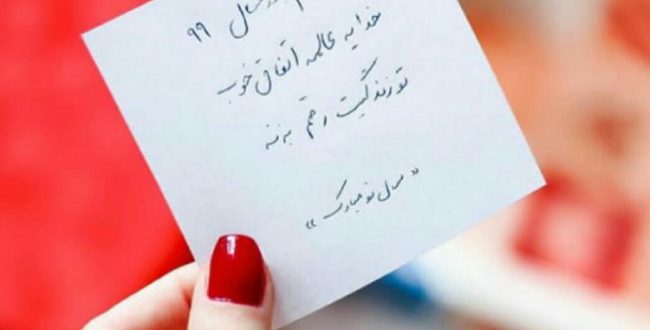 سال ۹۹
خدا یه عالمه اتفاق خوب
تو زندگیت رقم بزنه
«سال نو مبارک»